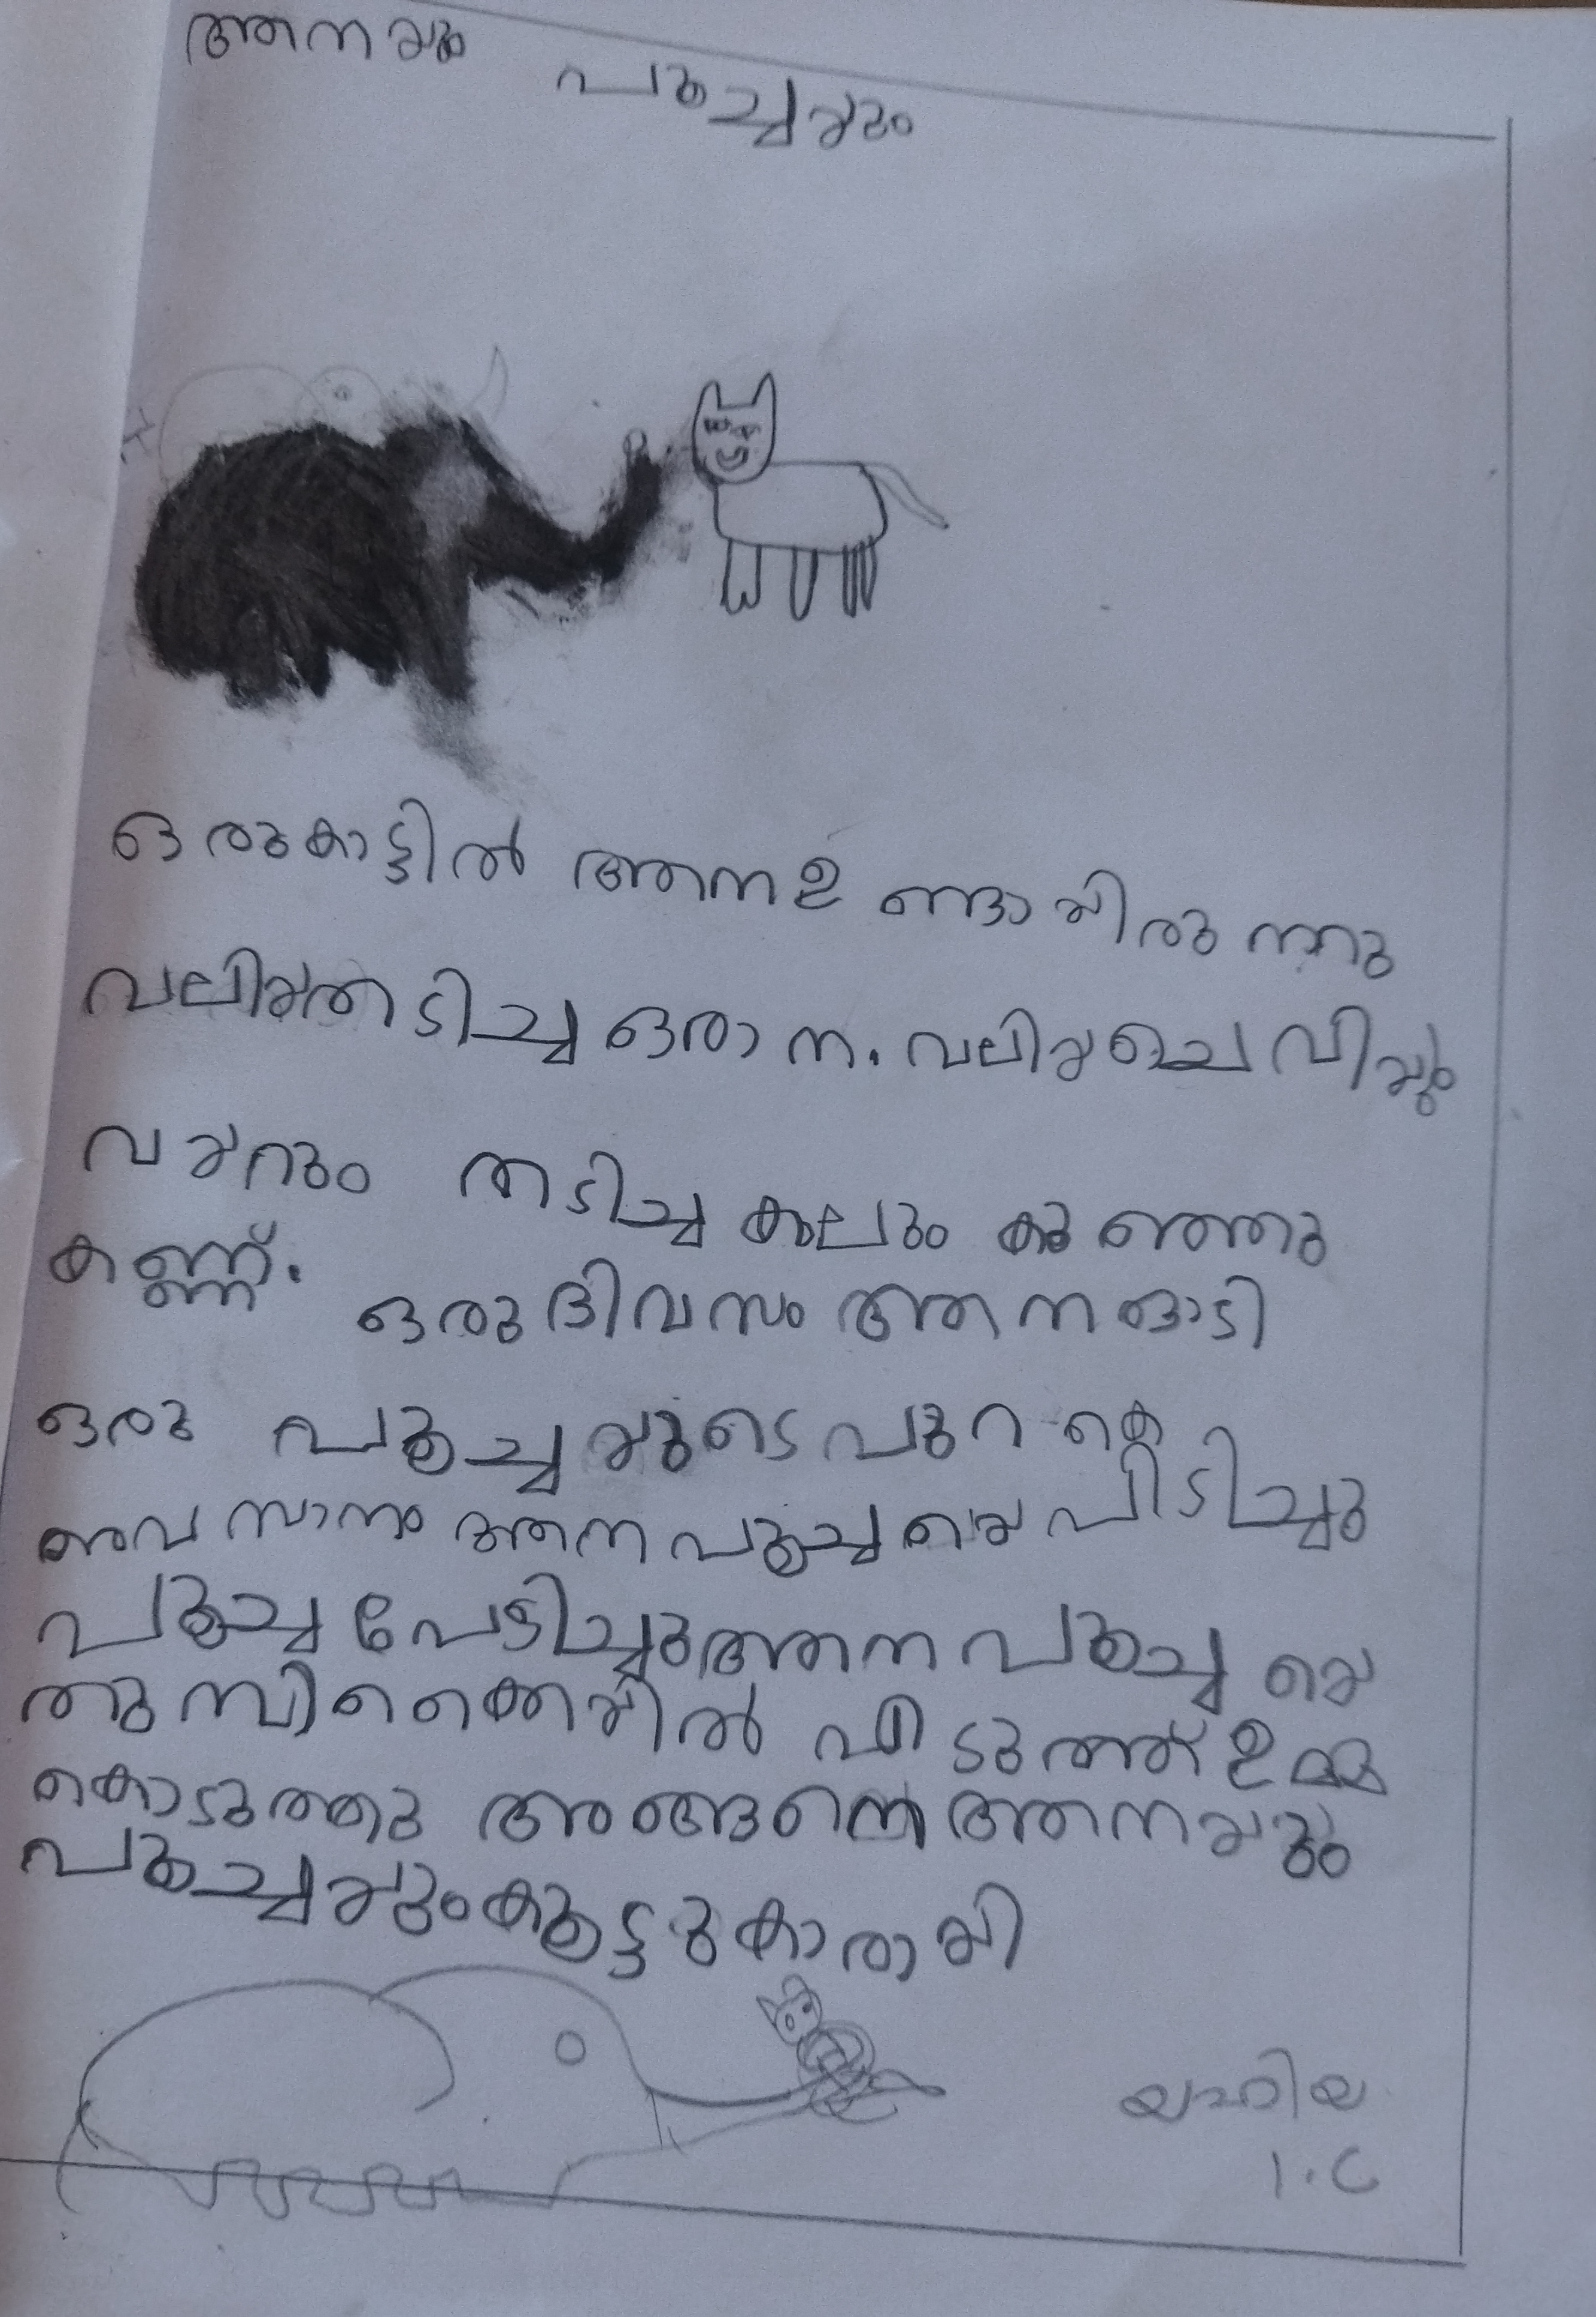 ആനയും
പൂച്ചയും
ഒരുകാട്ടിൽ ആനഉ ണ്ടായിരു ന്നു
വലിയതടിച്ച ഒരാ ന. വലിയചെവിയും
വയറും തടിച്ച കാലും കു ഞ്ഞു
കണ്ണ്.
ഒരുദിവസം ആന ഓടി
ഒരു പൂച്ചയുടെ പുറകെ
അവസാനം ആന പൂച്ചയെ പിടിച്ചു
പൂച്ച പേടിച്ചു ആന പൂച്ച യെ
തുമ്പികൈയിൽ പിടുത്ത് ഉമ്മ
കൊടുത്തു അങ്ങനെ ആനയും
പൂച്ചയുംകൂട്ടുകാരായി
യഹിയ
1.C